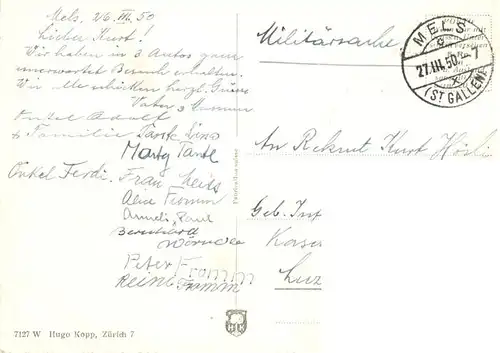 Mels, 26. III. 50
Lieber Kurt!
Wir haben in 3 Autos ganz
unerwartet Besuch erhalten.
Wir alle schicken herzl. Grüsse
Vater & Mamma
Onkel Adolf
& Familie Tante Lina
Marty Tante
Onkel Ferdi. Frau
Alice Fromm
Anneli, Paul
Bernhard
Peter Fromm
Reini Fromm
7127 W Hugo Kopp, Zürich 7
Militärsache
MELS
27.III.50. 7
(ST GALLEN)
An Rekrut Kurt Hösli
Geb. Inf
Kaserne
Luz